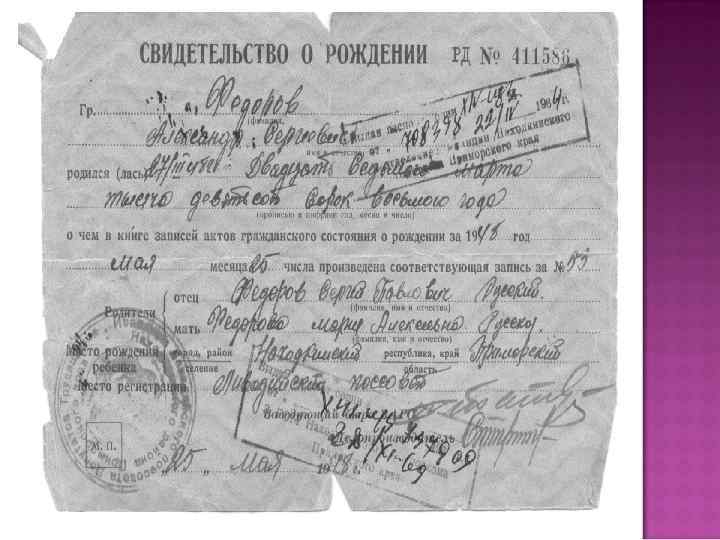 СВИДЕТЕЛЬСТВО О РОЖДЕНИИ РД № 411586
Гр. Федоров
(фамилия,
Александр Сергеевич
имя и отчество)
родился (лась) 27/III Двадцать Седьмого Марта
тысяча девятсот Сорок восьмого года
(прописью и цифрами год, месяц и число)
о чем в книге записей актов гражданского состояния о рождении за 1948 год
мая месяца 25 числа произведена соответствующая запись за № 53
Родители
отец Федоров Сергей Павлович Русский.
(фамилия, имя и отчество)
мать Федорова Мария Алексеевна Русская.
(фамилия, имя и отчество)
Место рождения ребенка
город, район Находкинский республика, край Приморский
селение
область
Место регистрации Ливадийский поссовет
М. П.
Делопроизводитель
„25 „ мая 1948 г.
выдан паспорт
XIV-
708378 22/IV 1964 г.
милиции Находкинского
Приморского края